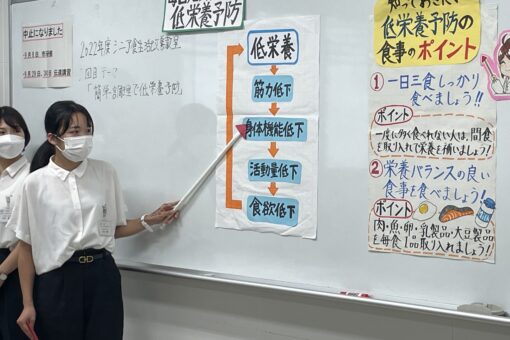 中止になりました
2022年度シニア食生活支援教室
二回目 テーマ
「簡単調理で低栄養予防」
低栄養予防
低栄養
筋力低下
身体機能低下
活動量低下
食欲低下
知っておきたい
低栄養予防の
食事のポイント
① 一日三食しっかり
食べましょう!!
ポイント
一度に多く食べれない人は、間食
を取り入れて栄養を補いましょう!
② 栄養バランスの良い
食事を食べましょう!!
ポイント
肉・魚・卵・乳製品・大豆製品
を毎食1品取り入れましょう!